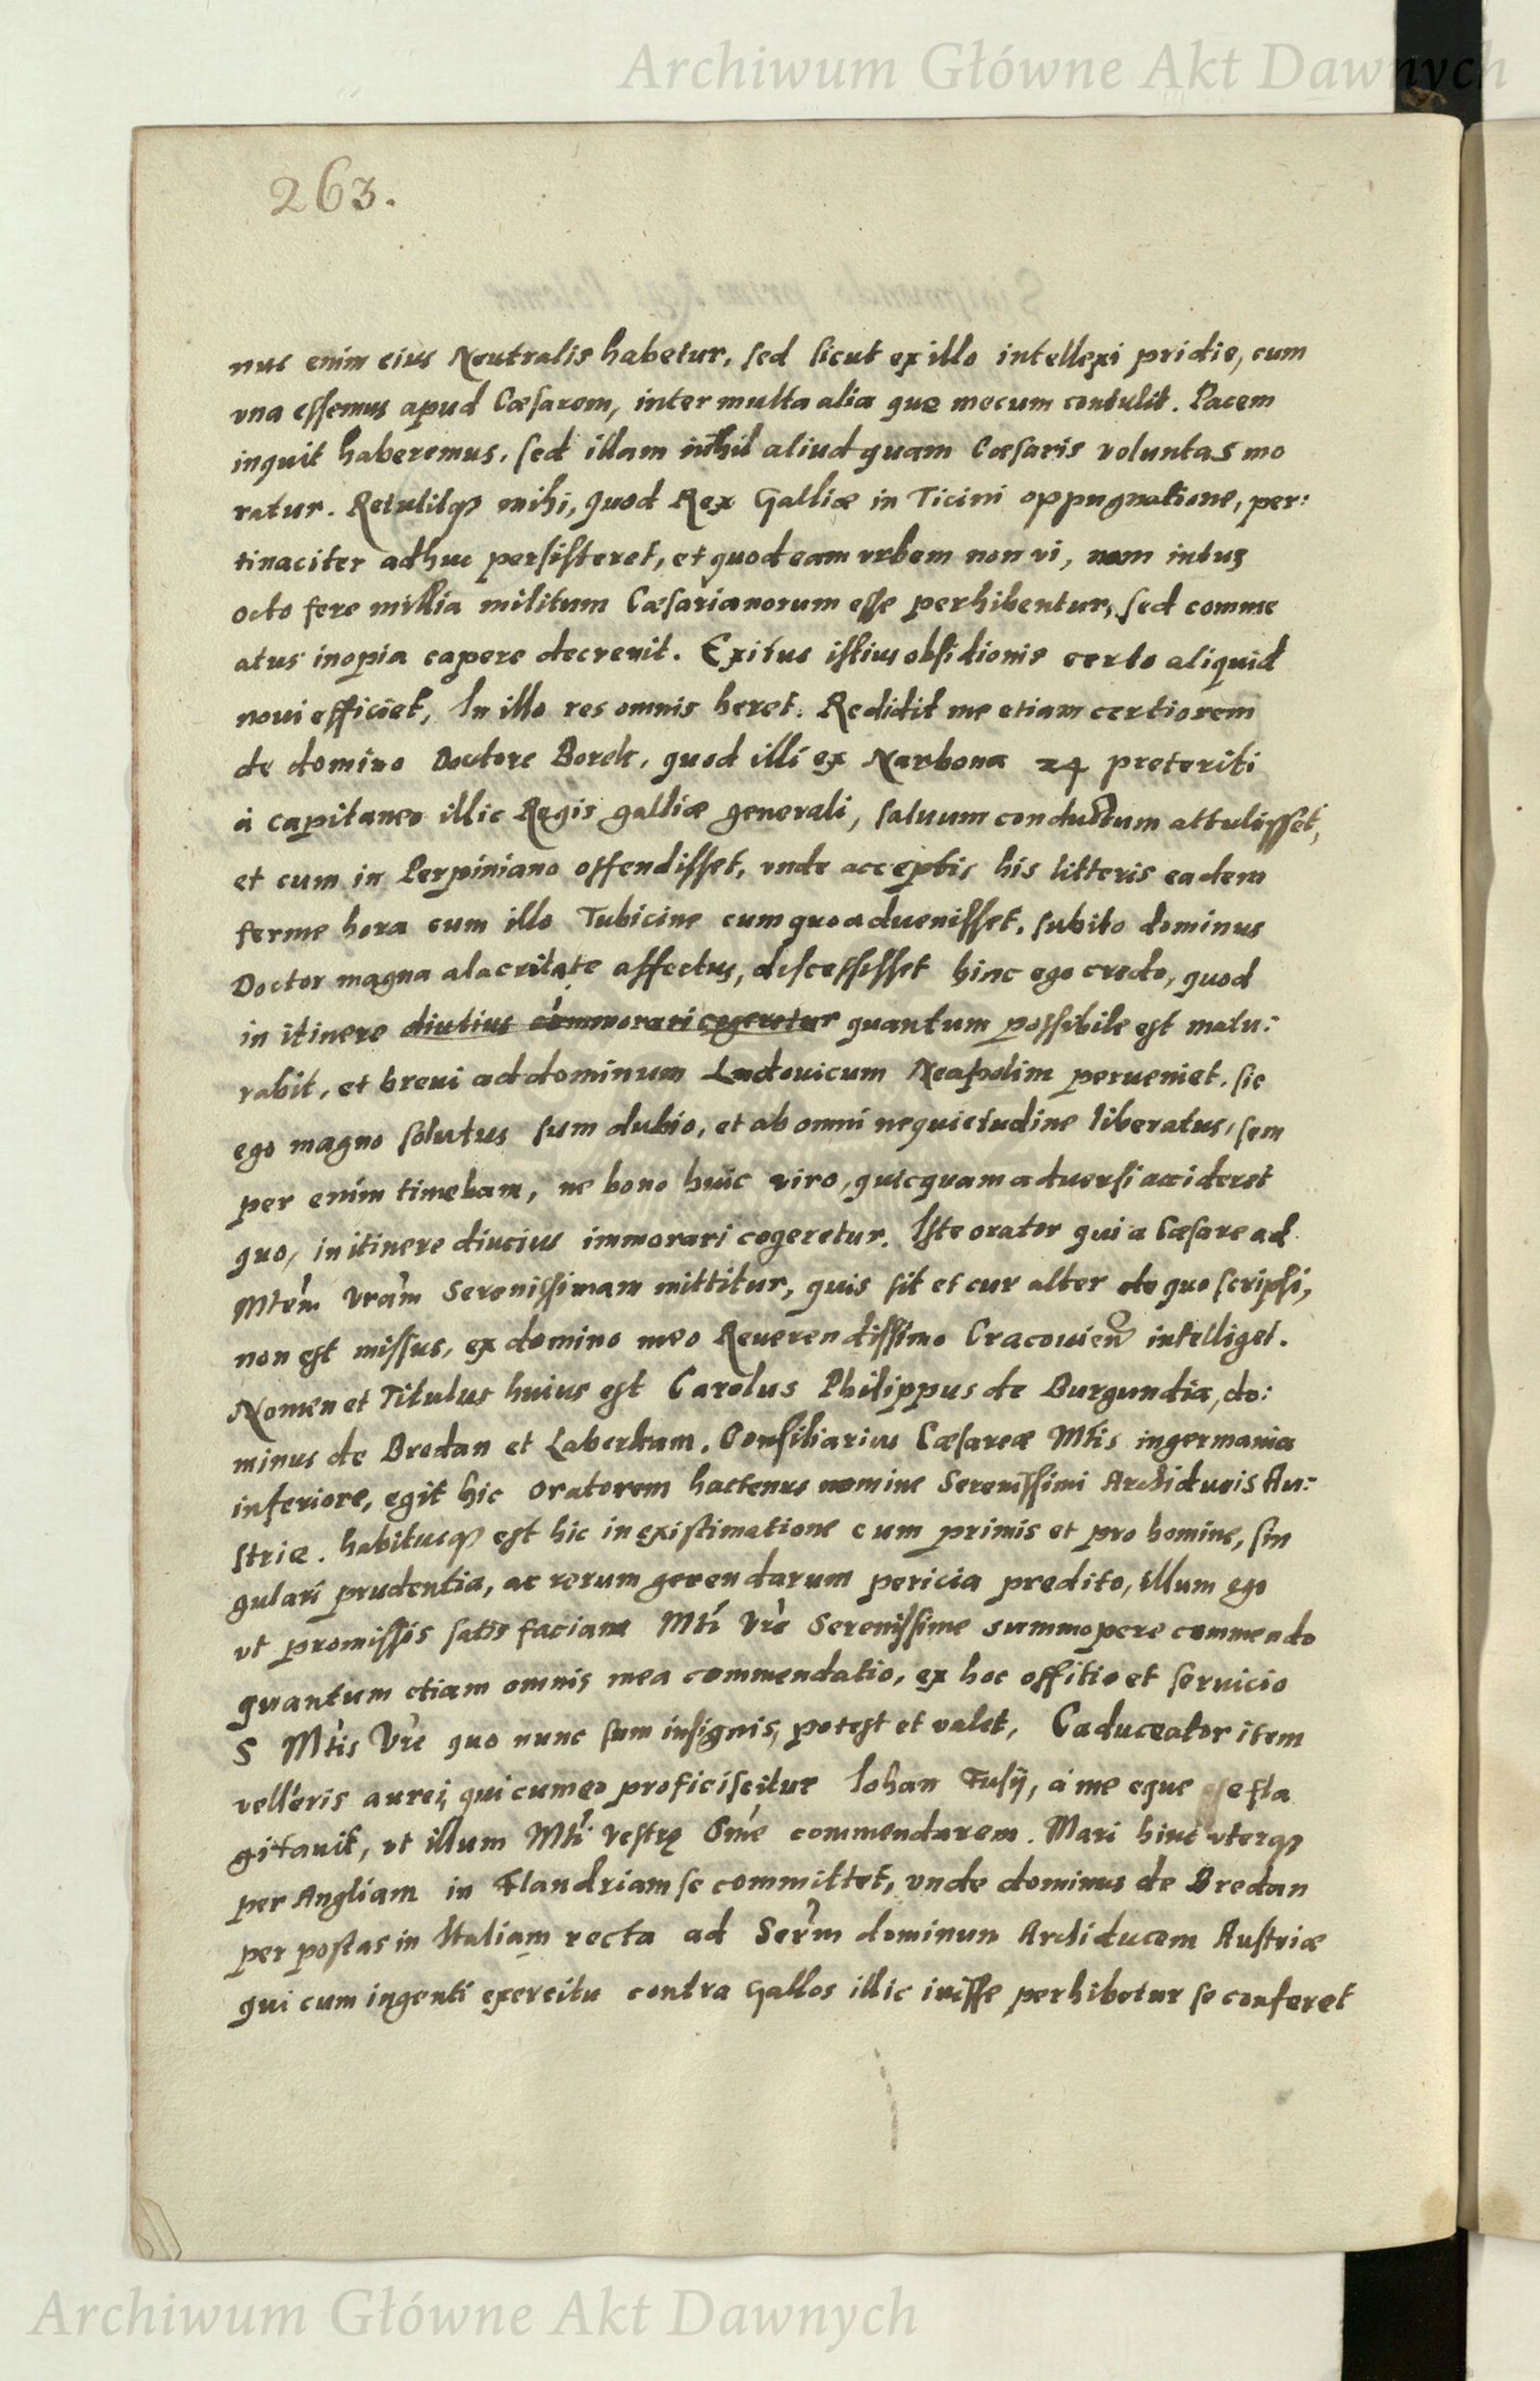 Archiwum Główne Akt Dawnych
263.
nus enim eius Neutralis habetur, sed sicut ex illo intellexi pridie, cum
vna essemus apud Cæsarem, inter multa alia que mecum contulit. Pacem
inquit haberemus, sed illam nihil aliud quam Cæsaris voluntas mo
ratur. Retulitqȝ mihi, quod Rex Galliæ in Ticini oppugnatione, per:
tinaciter adhuc persisteret, et quod eam vrbem non vi, nam intus
octo fere millia militum Cæsarianorum esse perhibentur, sed comme
atus inopia capere decrevit. Exitus istius obsidionis certo aliquid
noui efficiet, In illo res omnis heret. Redidit me etiam certiorem
de domino Doctore Borek, quod illi ex Narbona 24 preteriti
à capitaneo illic Regis galliæ generali, saluum conductum attulisset,
et eum in Perpiniano offendisset, vnde acceptis his litteris eadem
ferme hora cum illo Tubicine cum quo aduenisset, subito dominus
Doctor magna alacritate affectus, discessisset hinc ego credo, quod
in itinere diutius commorari cogeretur quantum possibile est matu:
rabit, et breui ad dominum Ludouicum Neapolim perueniet. sic
ego magno solutus sum dubio, et ab omni nequietudine liberatus, sem
per enim timebam, ne bono huic viro, quicquam aduersi accideret
quo, in itinere diucius immorari cogeretur. Iste orator qui a Cæsare ad
Mtem Vram Serenissimam mittitur, quis sit et cur alter de quo scripsi,
non est missus, ex domino meo Reuerendissimo Cracouien intelliget.
Nomen et Titulus huius est Carolus Philippus de Burgundia, do:
minus de Bredan et Laberkam. Consiliarius Cæsareæ Mtis in germania
inferiore, egit hic oratorem hactenus nomine Serenissimi Archiducis Au:
striæ. habitusqȝ est hic in existimatione cum primis et pro homine, sin
gulari prudentia, ac rerum gerendarum pericia predito, illum ego
vt promissis satis faciam Mti Vre Serenissime summopere commendo
quantum etiam omnis mea commendatio, ex hoc offitio et seruicio
S Mtis Vre quo nunc sum insignis, potest et valet, Caduceator item
velleris aurei, qui cum eo proficiscitur Iohan Fusij, à me eque efla
gitauit, vt illum Mti Vestrę Sme commendarem. Mari hinc vterqȝ
per Angliam in Flandriam se committet, vnde dominus de Bredan
per postas in Italiam recta ad Serm dominum Archiducem Austriæ
qui cum ingenti exercitu contra Gallos illic iuisse perhibetur se conferet
Archiwum Główne Akt Dawnych